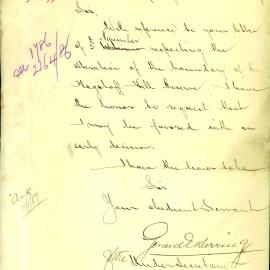 Sir,
With reference to your letter
of respecting the
alteration of the boundary of the
Flagstaff Hill Reserve I have
the honor to request that
I may be favored with an
early decision.
I have the honor to be
Sir
Your obedient Servant
Under Secretary